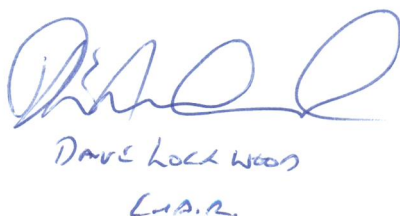 DAVE LOCKWOOD
CHAIR